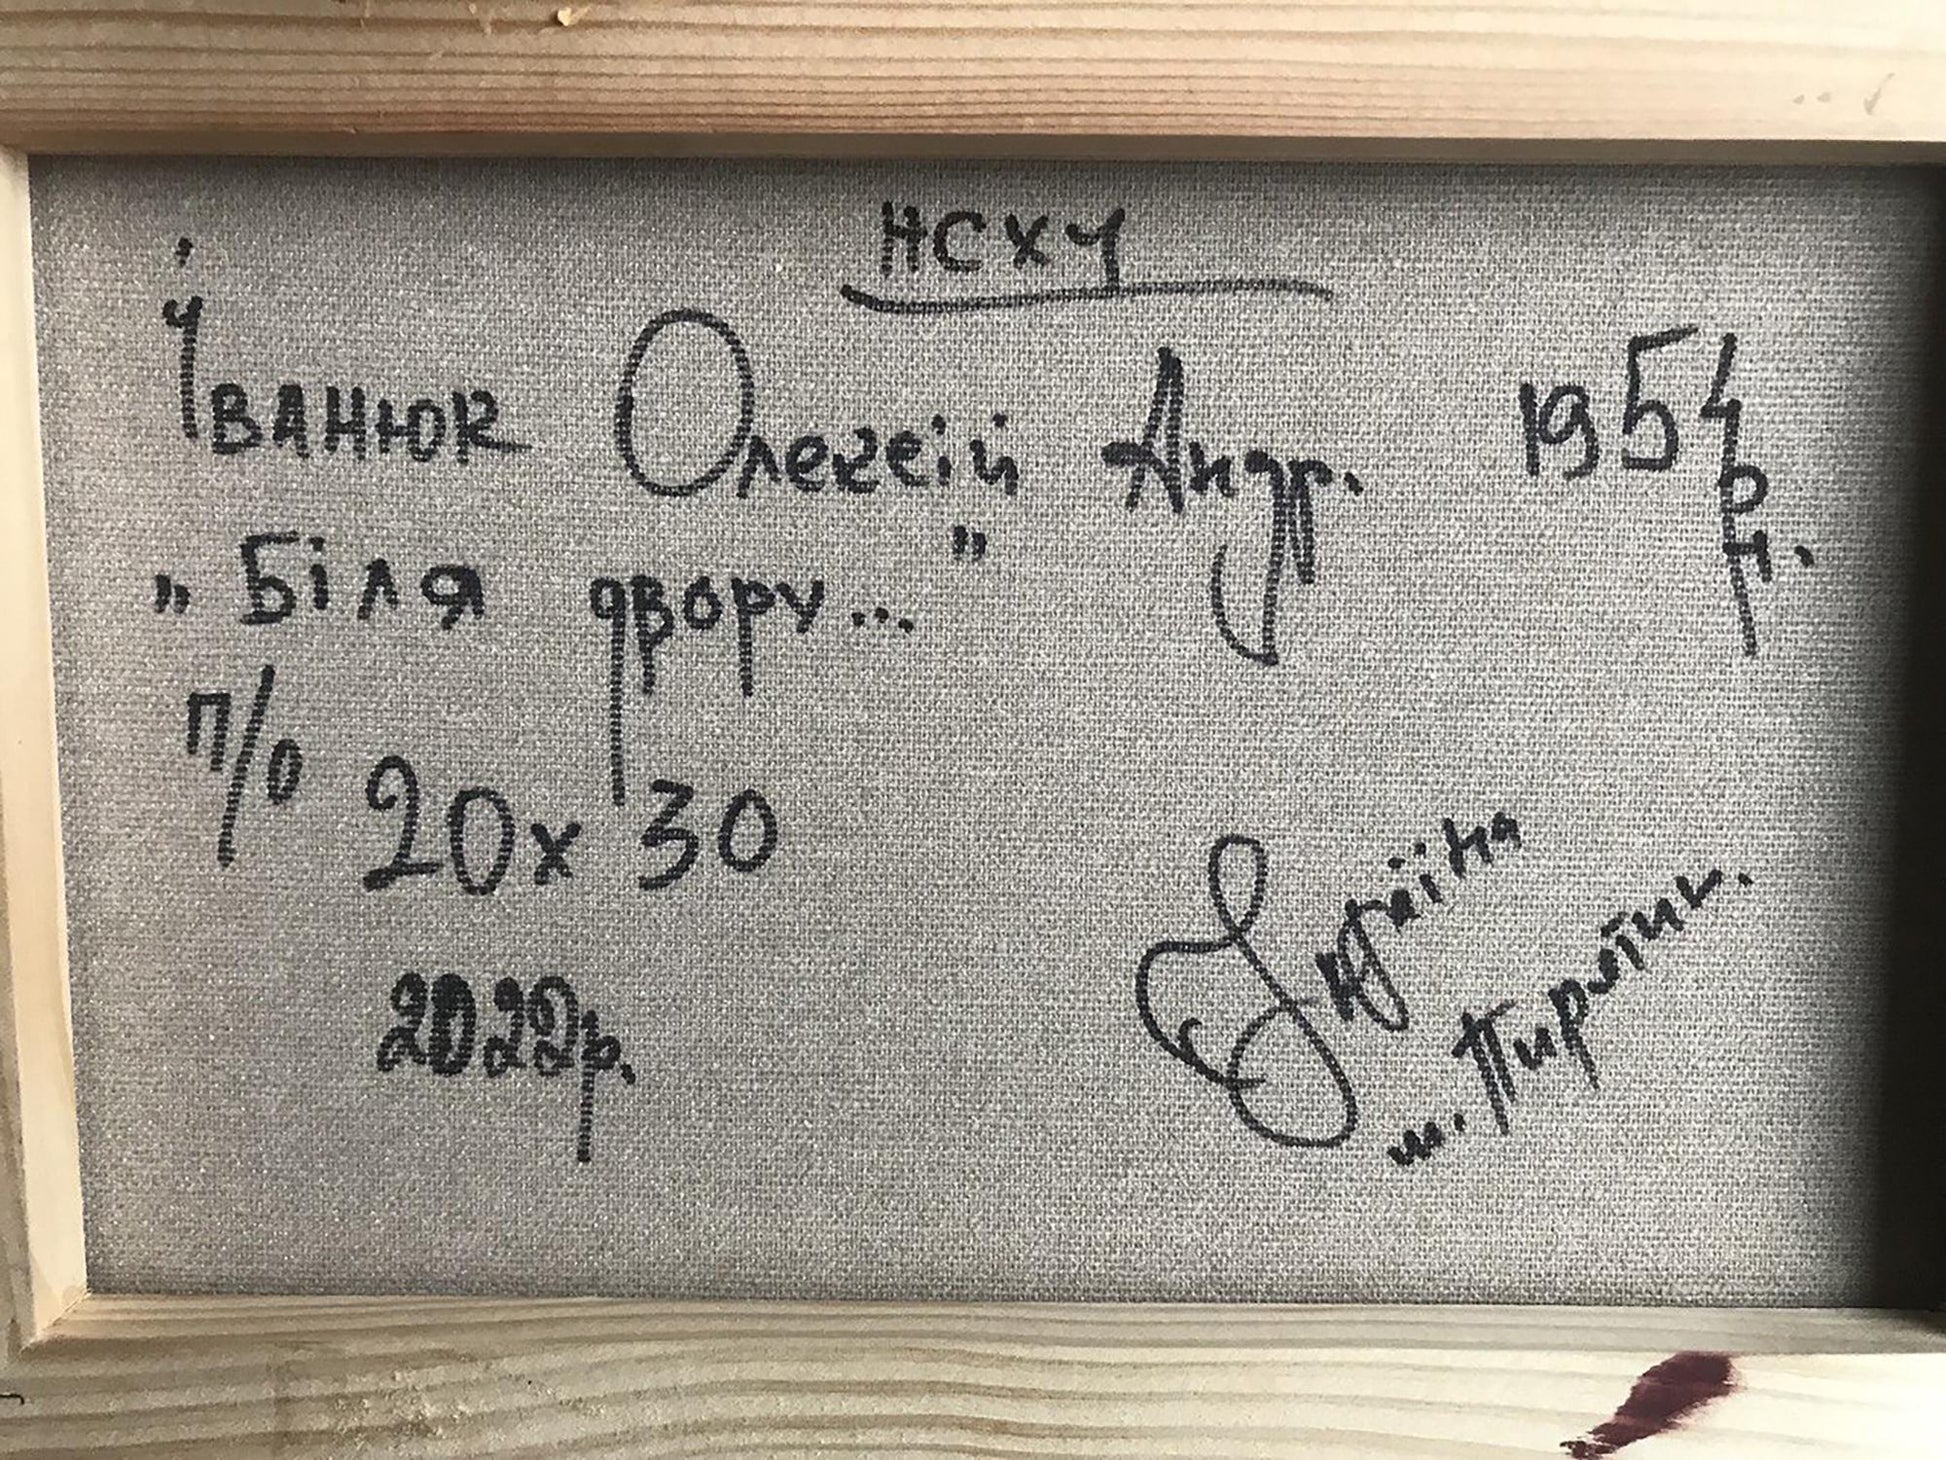 НСХУ
Іванюк Олексій Андр. 1954
р.н.
„Біля двору..."
П/О 20х30
2022р.
Україна
м. Пирятин.